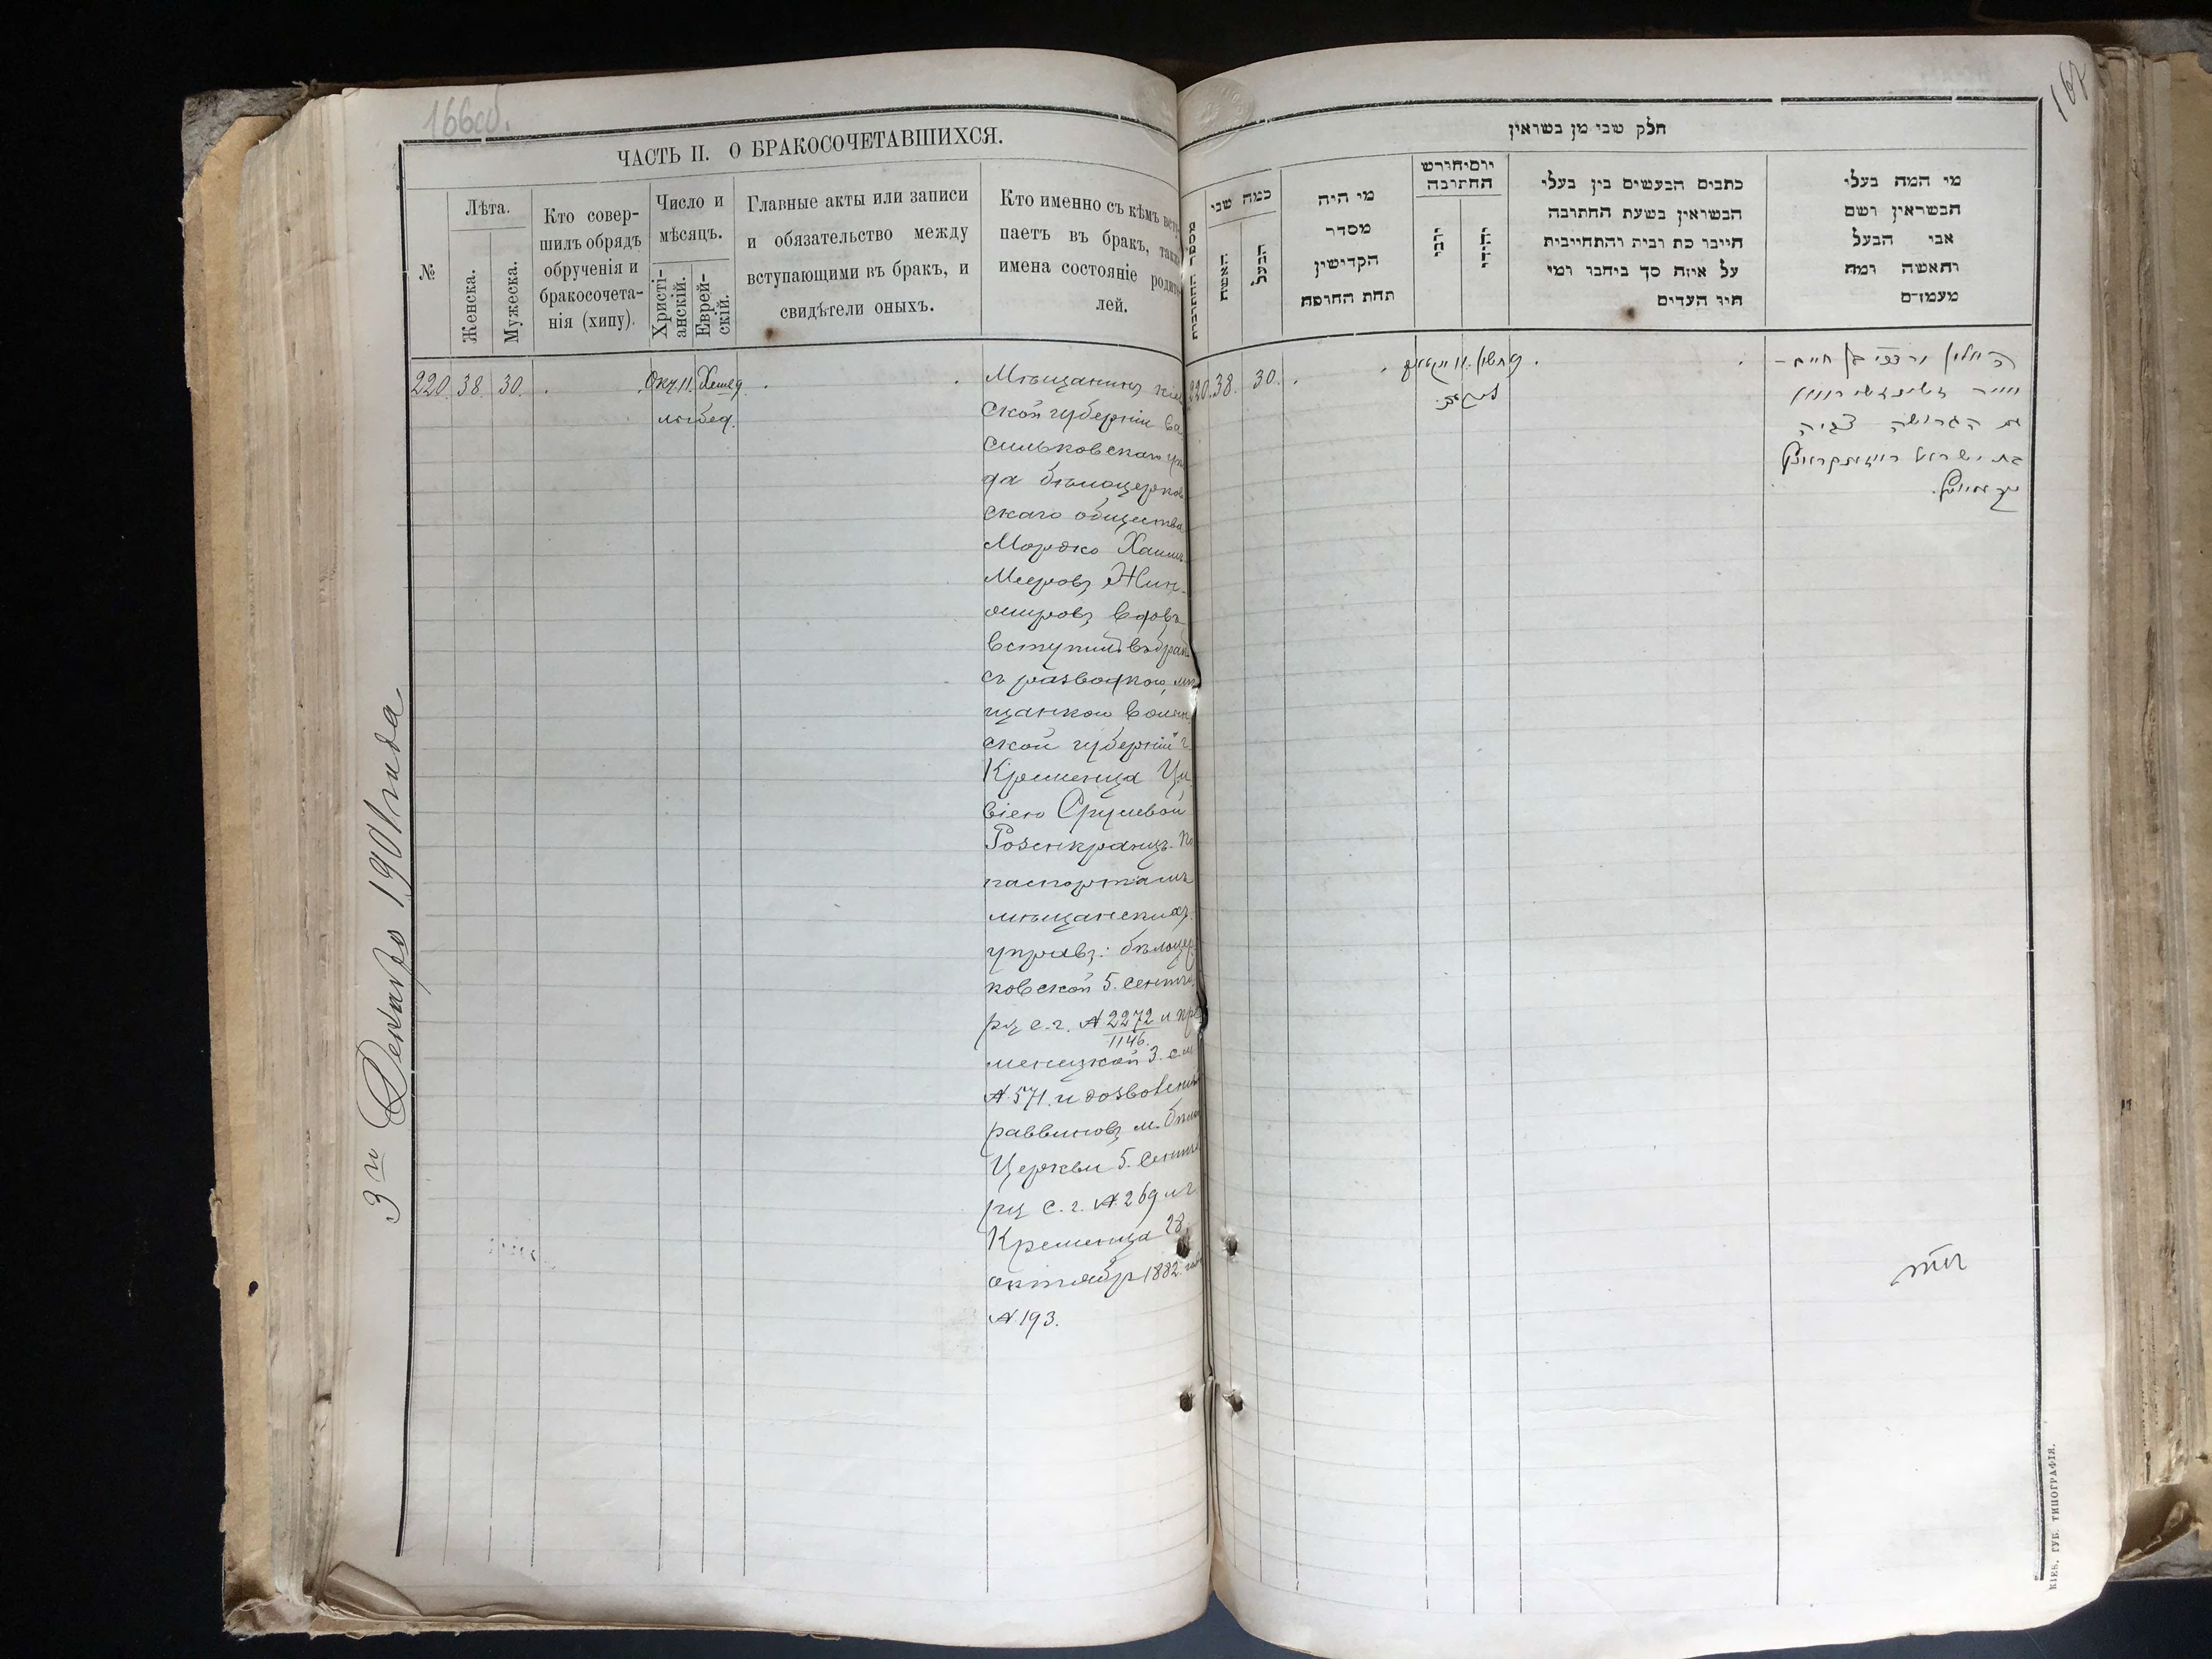 166об.
ЧАСТЬ II. О БРАКОСОЧЕТАВШИХСЯ.
№
Лѣта.
Женска.
Мужеска.
Кто совер-
шилъ обрядъ
обрученія и
бракосочета-
нія (хипу).
Число и
мѣсяцъ.
Христі-
анскій.
Еврей-
скій.
Главные акты или записи
и обязательство между
вступающими въ бракъ, и
свидѣтели оныхъ.
Кто именно съ кѣмъ всту
паетъ въ бракъ, такж
имена состояніе родите
лей.
220. 38. 30.
Окт. 11. Хеш. 9
Мѣщанинъ кіев
ской губерніи Ва
сильковскаго уѣз
да бѣлоцерков
скаго общества
Мордко Хаимъ
Мееровъ Жит
омировъ вдовъ
вступилъ въ бракъ
съ разводкою, мѣ
щанкою волын
ской губерніи г.
Кременца Ци
віею Срулевой
Розенкранцъ. По
паспортамъ
мѣщанскихъ
управъ: бѣлоцер
ковской 5. Сентя
ря с. г. № 2272 и кре
1146.
менецкой 3. с.м.
№ 571. и дозволеній
раввиновъ м. Бѣлой
Церкви 5. Сентя
ря с. г. № 269 и г.
Кременца 28.
октября 1882 года
№ 193.
3го Декабря 1901 года
167
חלק שני מן נשואין
מספר החתונות
כמה שני
האשה
הבעל
מי היה
מסדר
הקדישין
תחת החופה
יום וחודש
החתונה
יוני
יהודי
כתבים הנעשים בין בעלי
הנשואין בשעת החתונה
היינו כת ובית והתחייבות
על איזה סך ביחבו ומי
היו העדים
מי המה בעלי
הנשואין ושם
אבי הבעל
והאשה ומה
מעמדם
220. 38. 30.
מרדכי בן חיים
את הגרושה צביה
בת ישראל ראזענקראנץ
КІЕВ. ГУБ. ТИПОГРАФІЯ.